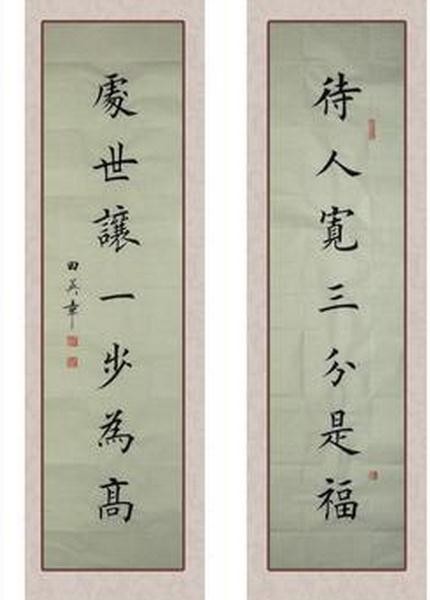 待人寬三分是福
處世讓一步為高
田英章